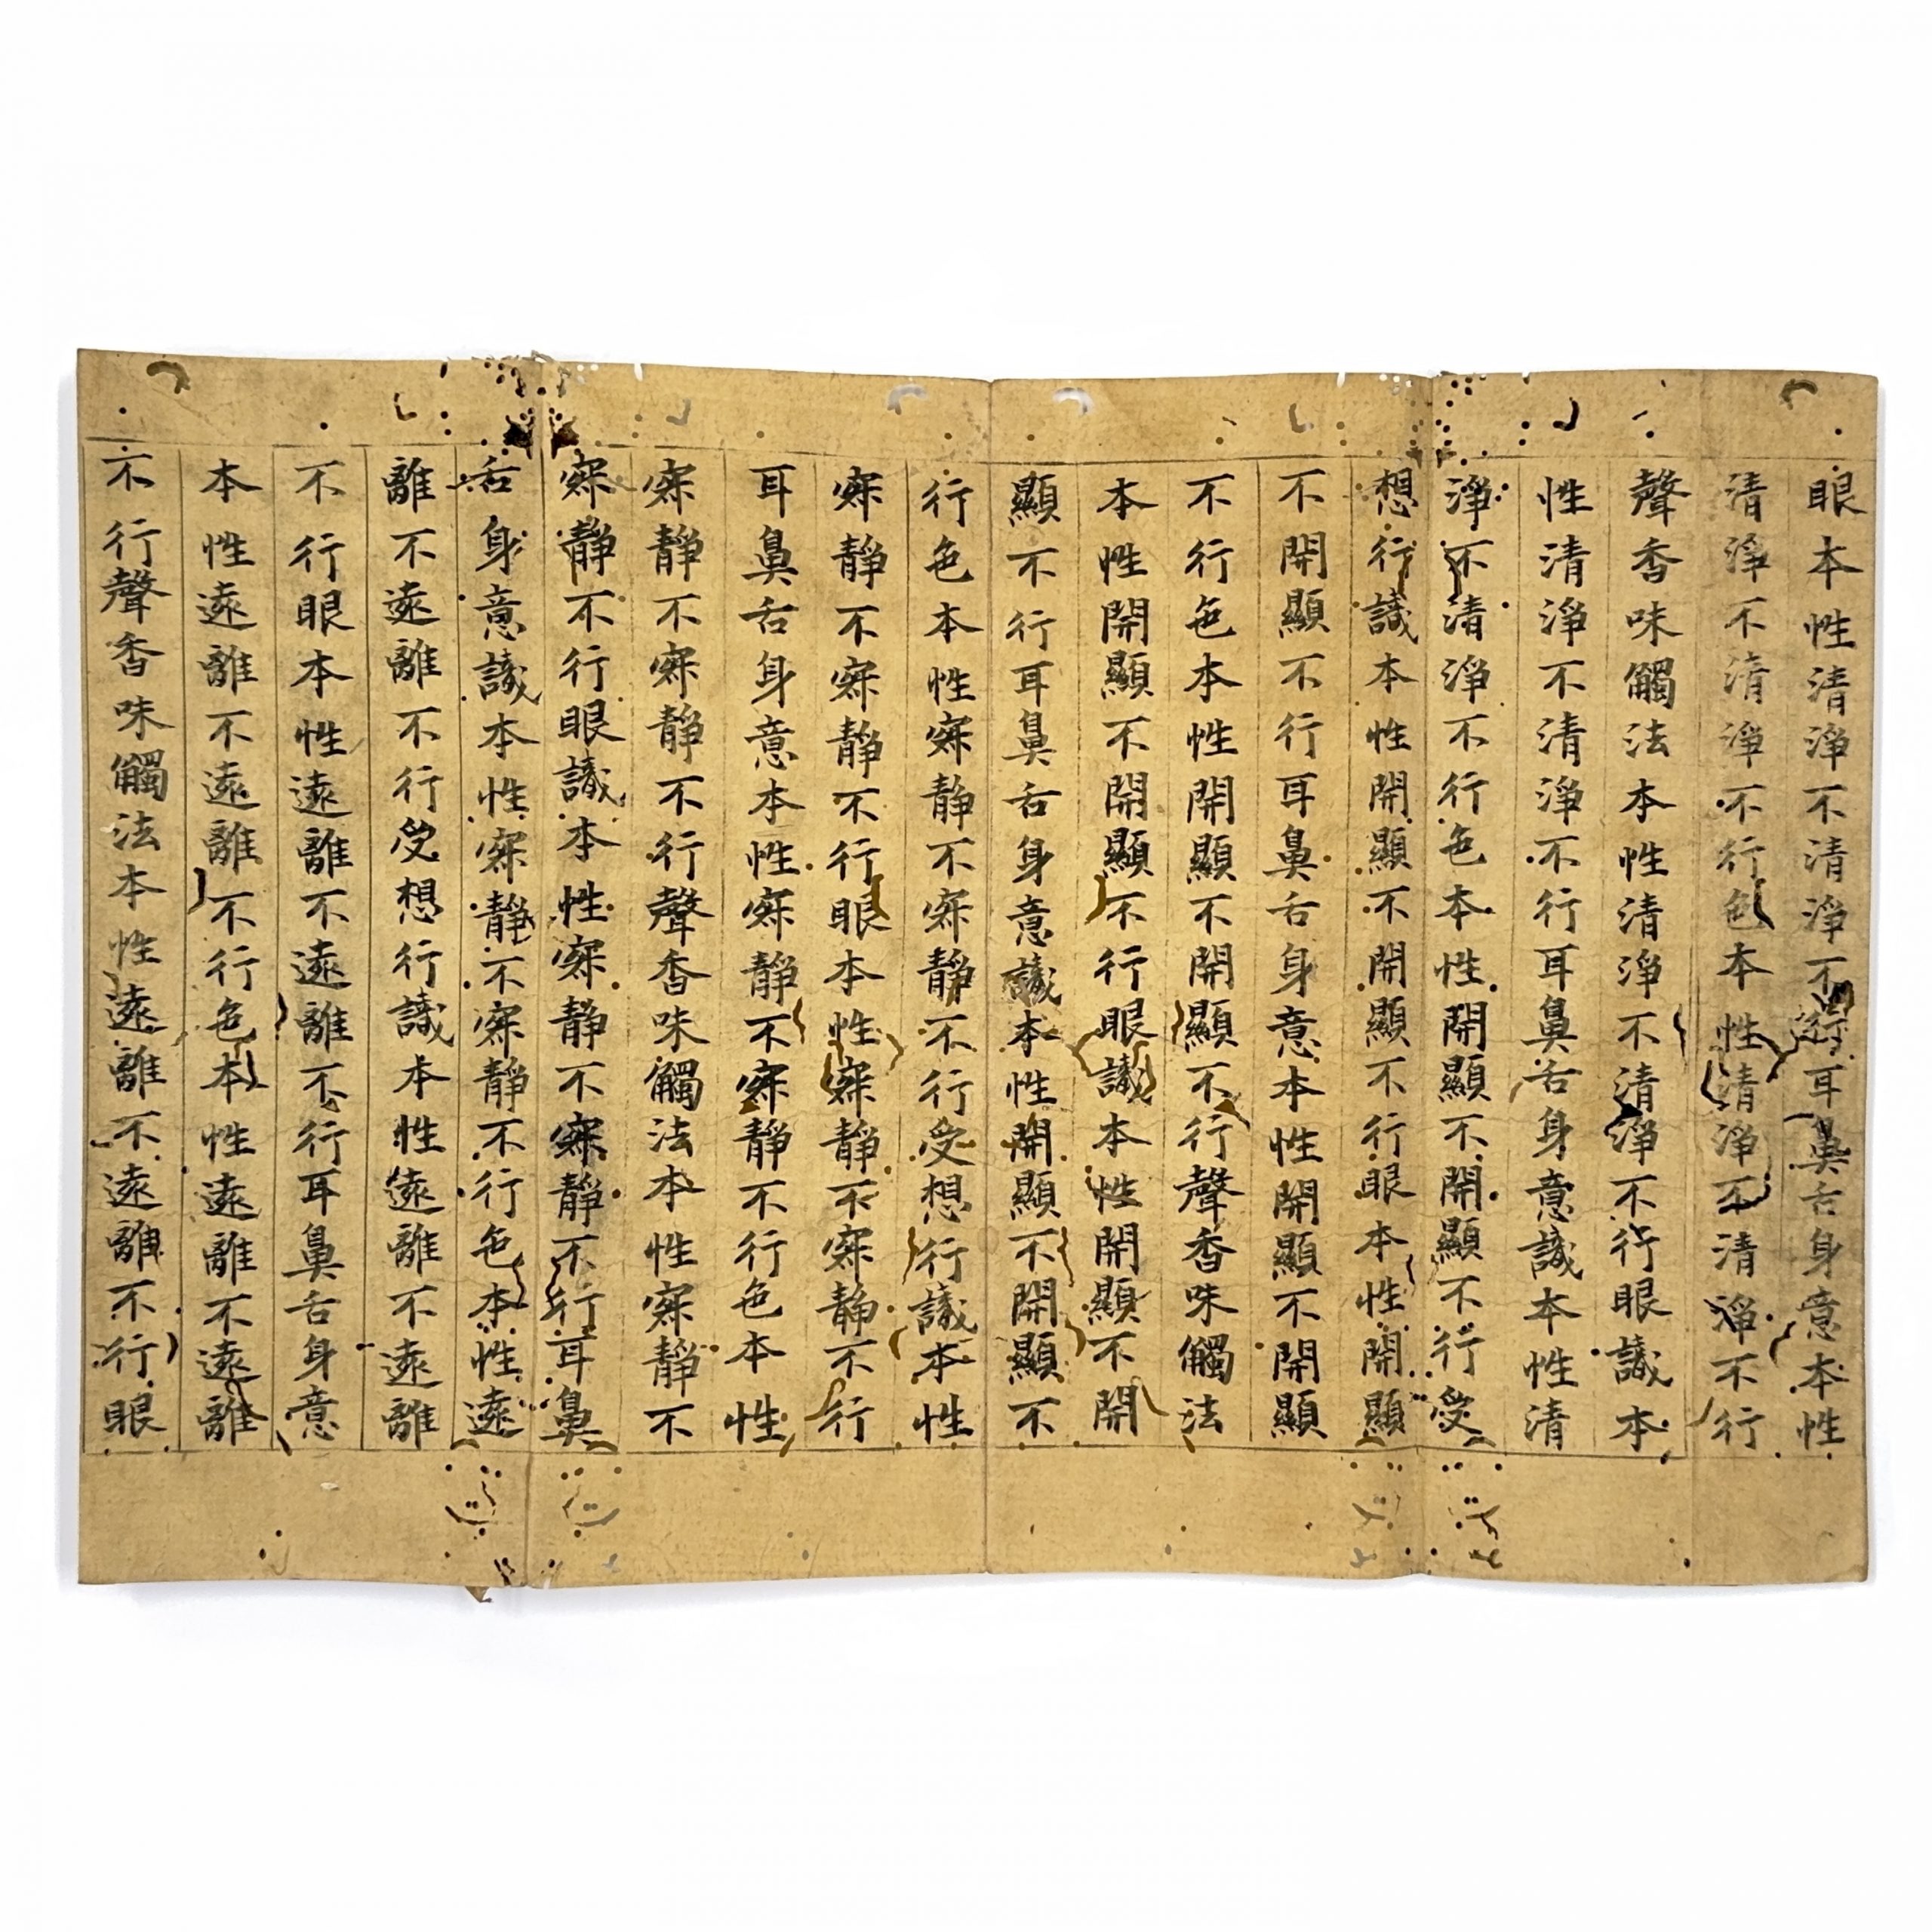 眼本性清淨不清淨不行耳鼻舌身意本性
清淨不清淨不行色本性清淨不清淨不行
聲香味觸法本性清淨不清淨不行眼識本
性清淨不清淨不行耳鼻舌身意識本性清
淨不清淨不行色本性開顯不開顯不行受
想行識本性開顯不開顯不行眼本性開顯
不開顯不行耳鼻舌身意本性開顯不開顯
不行色本性開顯不開顯不行聲香味觸法
本性開顯不開顯不行眼識本性開顯不開
顯不行耳鼻舌身意識本性開顯不開顯不
行色本性寂靜不寂靜不行受想行識本性
寂靜不寂靜不行眼本性寂靜不寂靜不行
耳鼻舌身意本性寂靜不寂靜不行色本性
寂靜不寂靜不行聲香味觸法本性寂靜不
寂靜不行眼識本性寂靜不寂靜不行耳鼻
舌身意識本性寂靜不寂靜不行色本性遠
離不遠離不行受想行識本性遠離不遠離
不行眼本性遠離不遠離不行耳鼻舌身意
本性遠離不遠離不行色本性遠離不遠離
不行聲香味觸法本性遠離不遠離不行眼